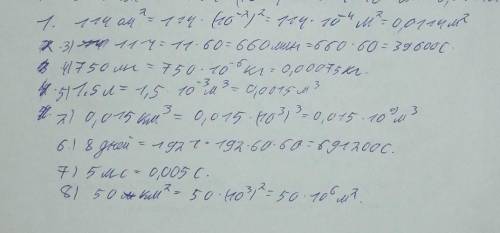 1. 114 см² = 114 · (10⁻²)² = 114 · 10⁻⁴ м² = 0,0114 м²
3) 11 ч = 11 · 60 = 660 мин = 660 · 60 = 39600 с.
4) 750 мг = 750 · 10⁻⁶ кг = 0,00075 кг.
5) 1,5 л = 1,5 · 10⁻³ м³ = 0,0015 м³
2) 0,015 км³ = 0,015 · (10³)³ = 0,015 · 10⁹ м³
6) 8 дней = 192 ч = 192 · 60 · 60 = 691200 с.
7) 5 мс = 0,005 с.
8) 50 км² = 50 · (10³)² = 50 · 10⁶ м².